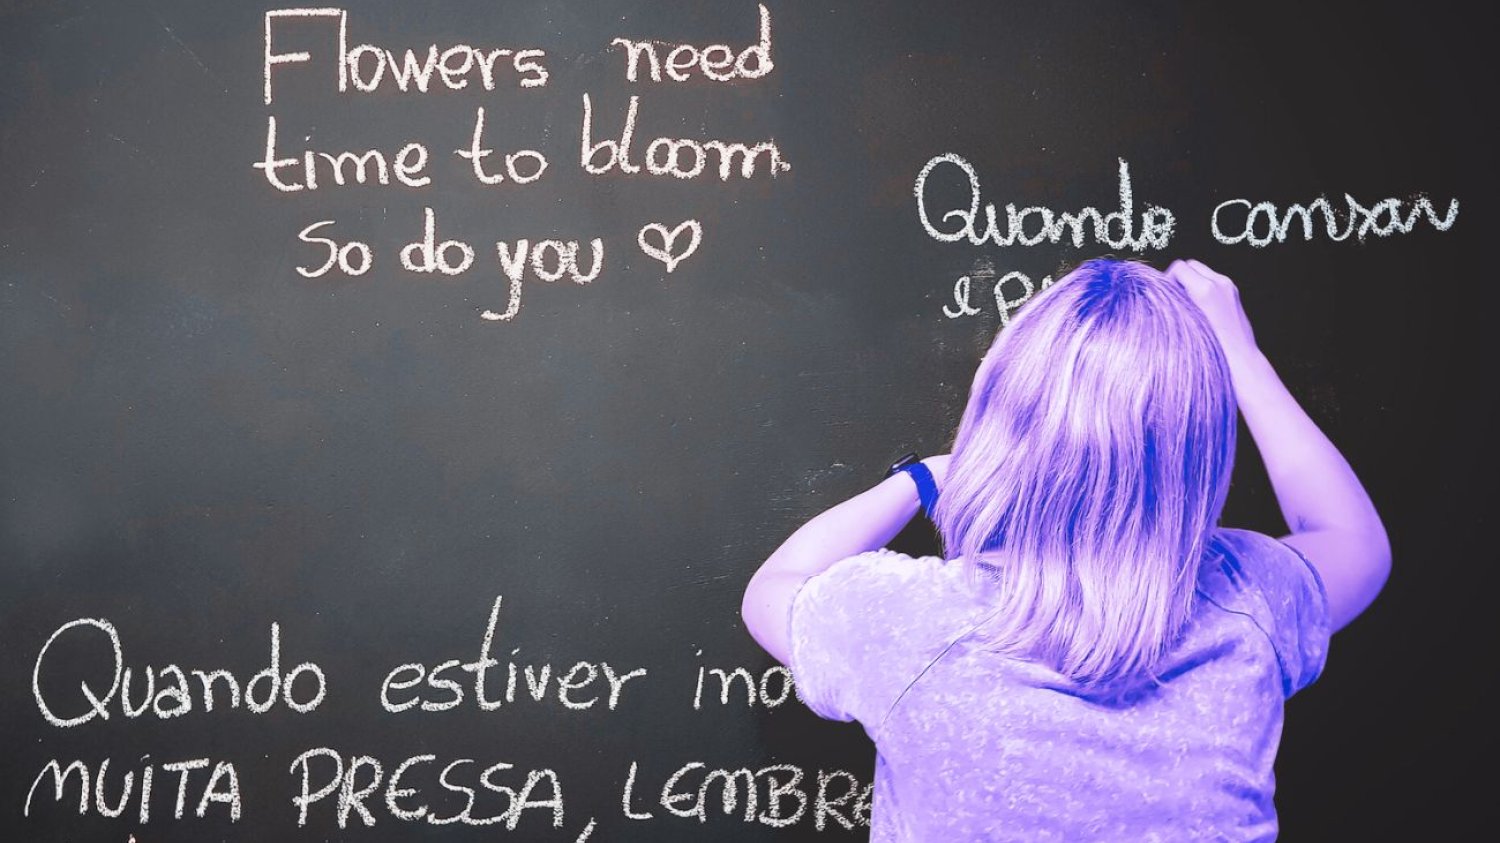 Flowers need
time to bloom.
So do you ♡
Quando cansar
e
Quando estiver
MUITA PRESSA,